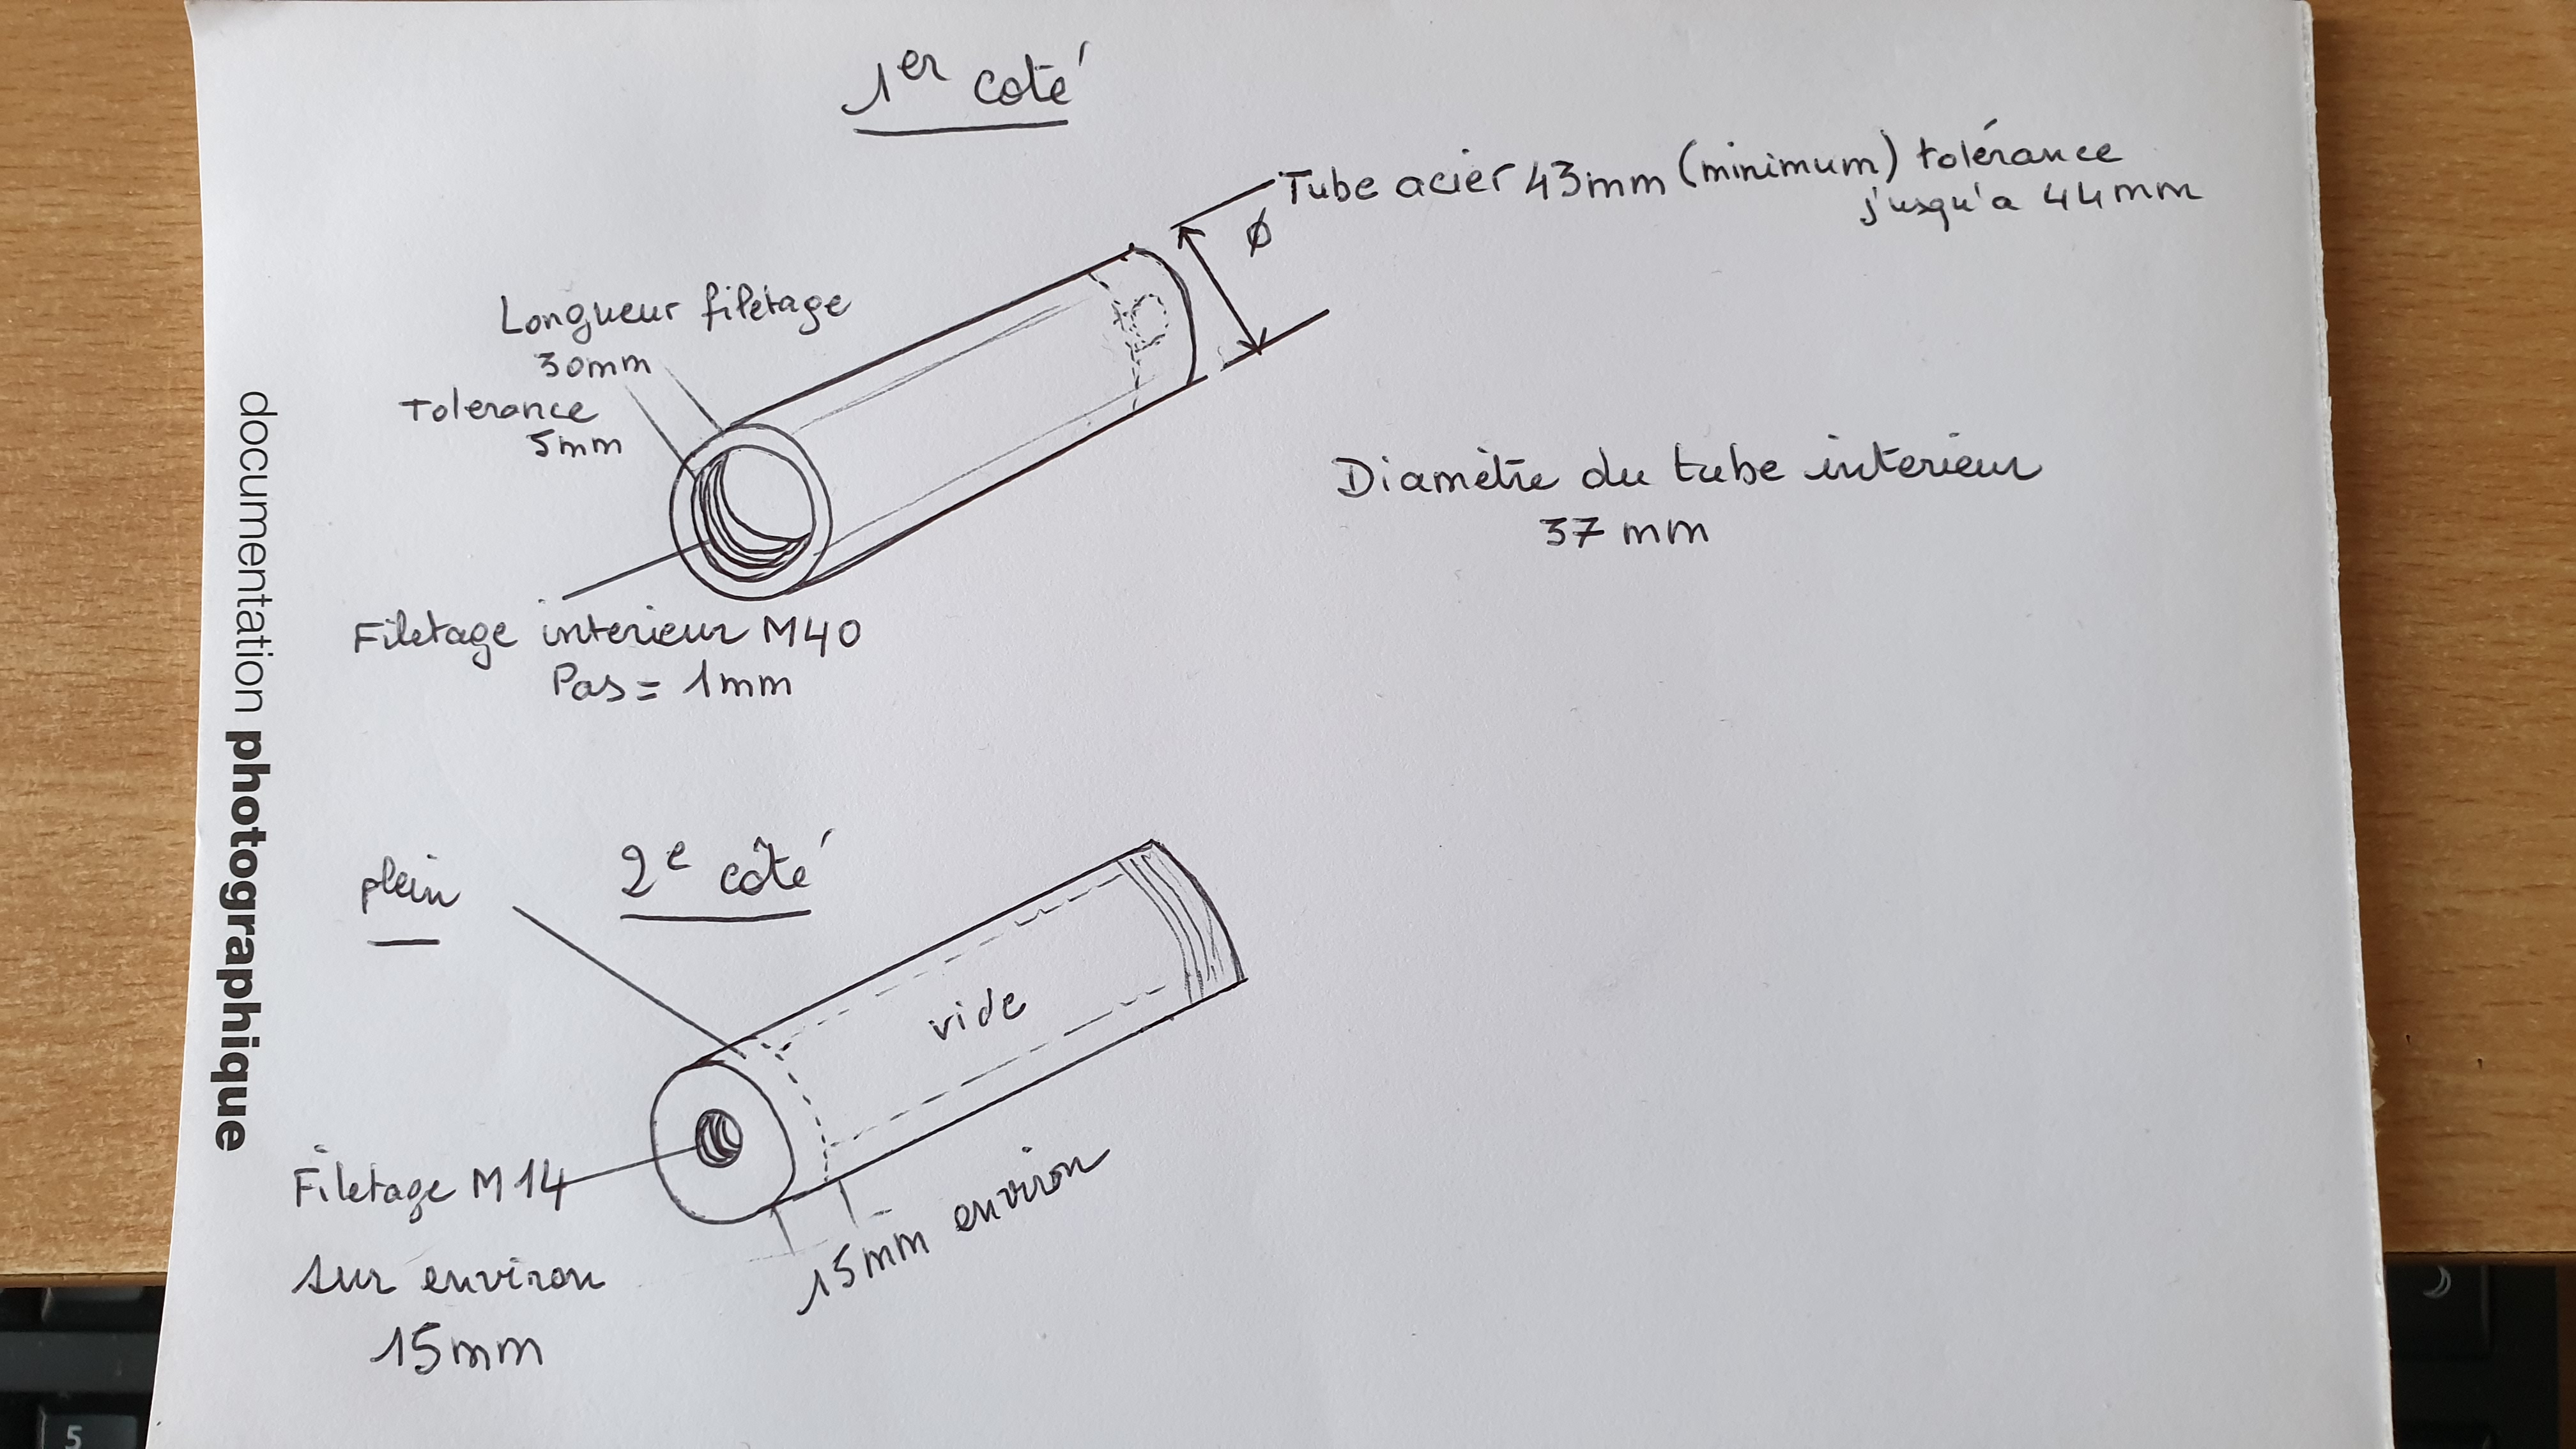 1er coté
Tube acier 43mm (minimum) tolérance
jusqu'a 44mm
Ø
Longueur filetage
30mm
Tolerance
5mm
Diamètre du tube interieur
37 mm
Filetage interieur M40
Pas = 1mm
documentation photographique
2e côté
plein
vide
Filetage M14
sur environ
15mm
15mm environ
5